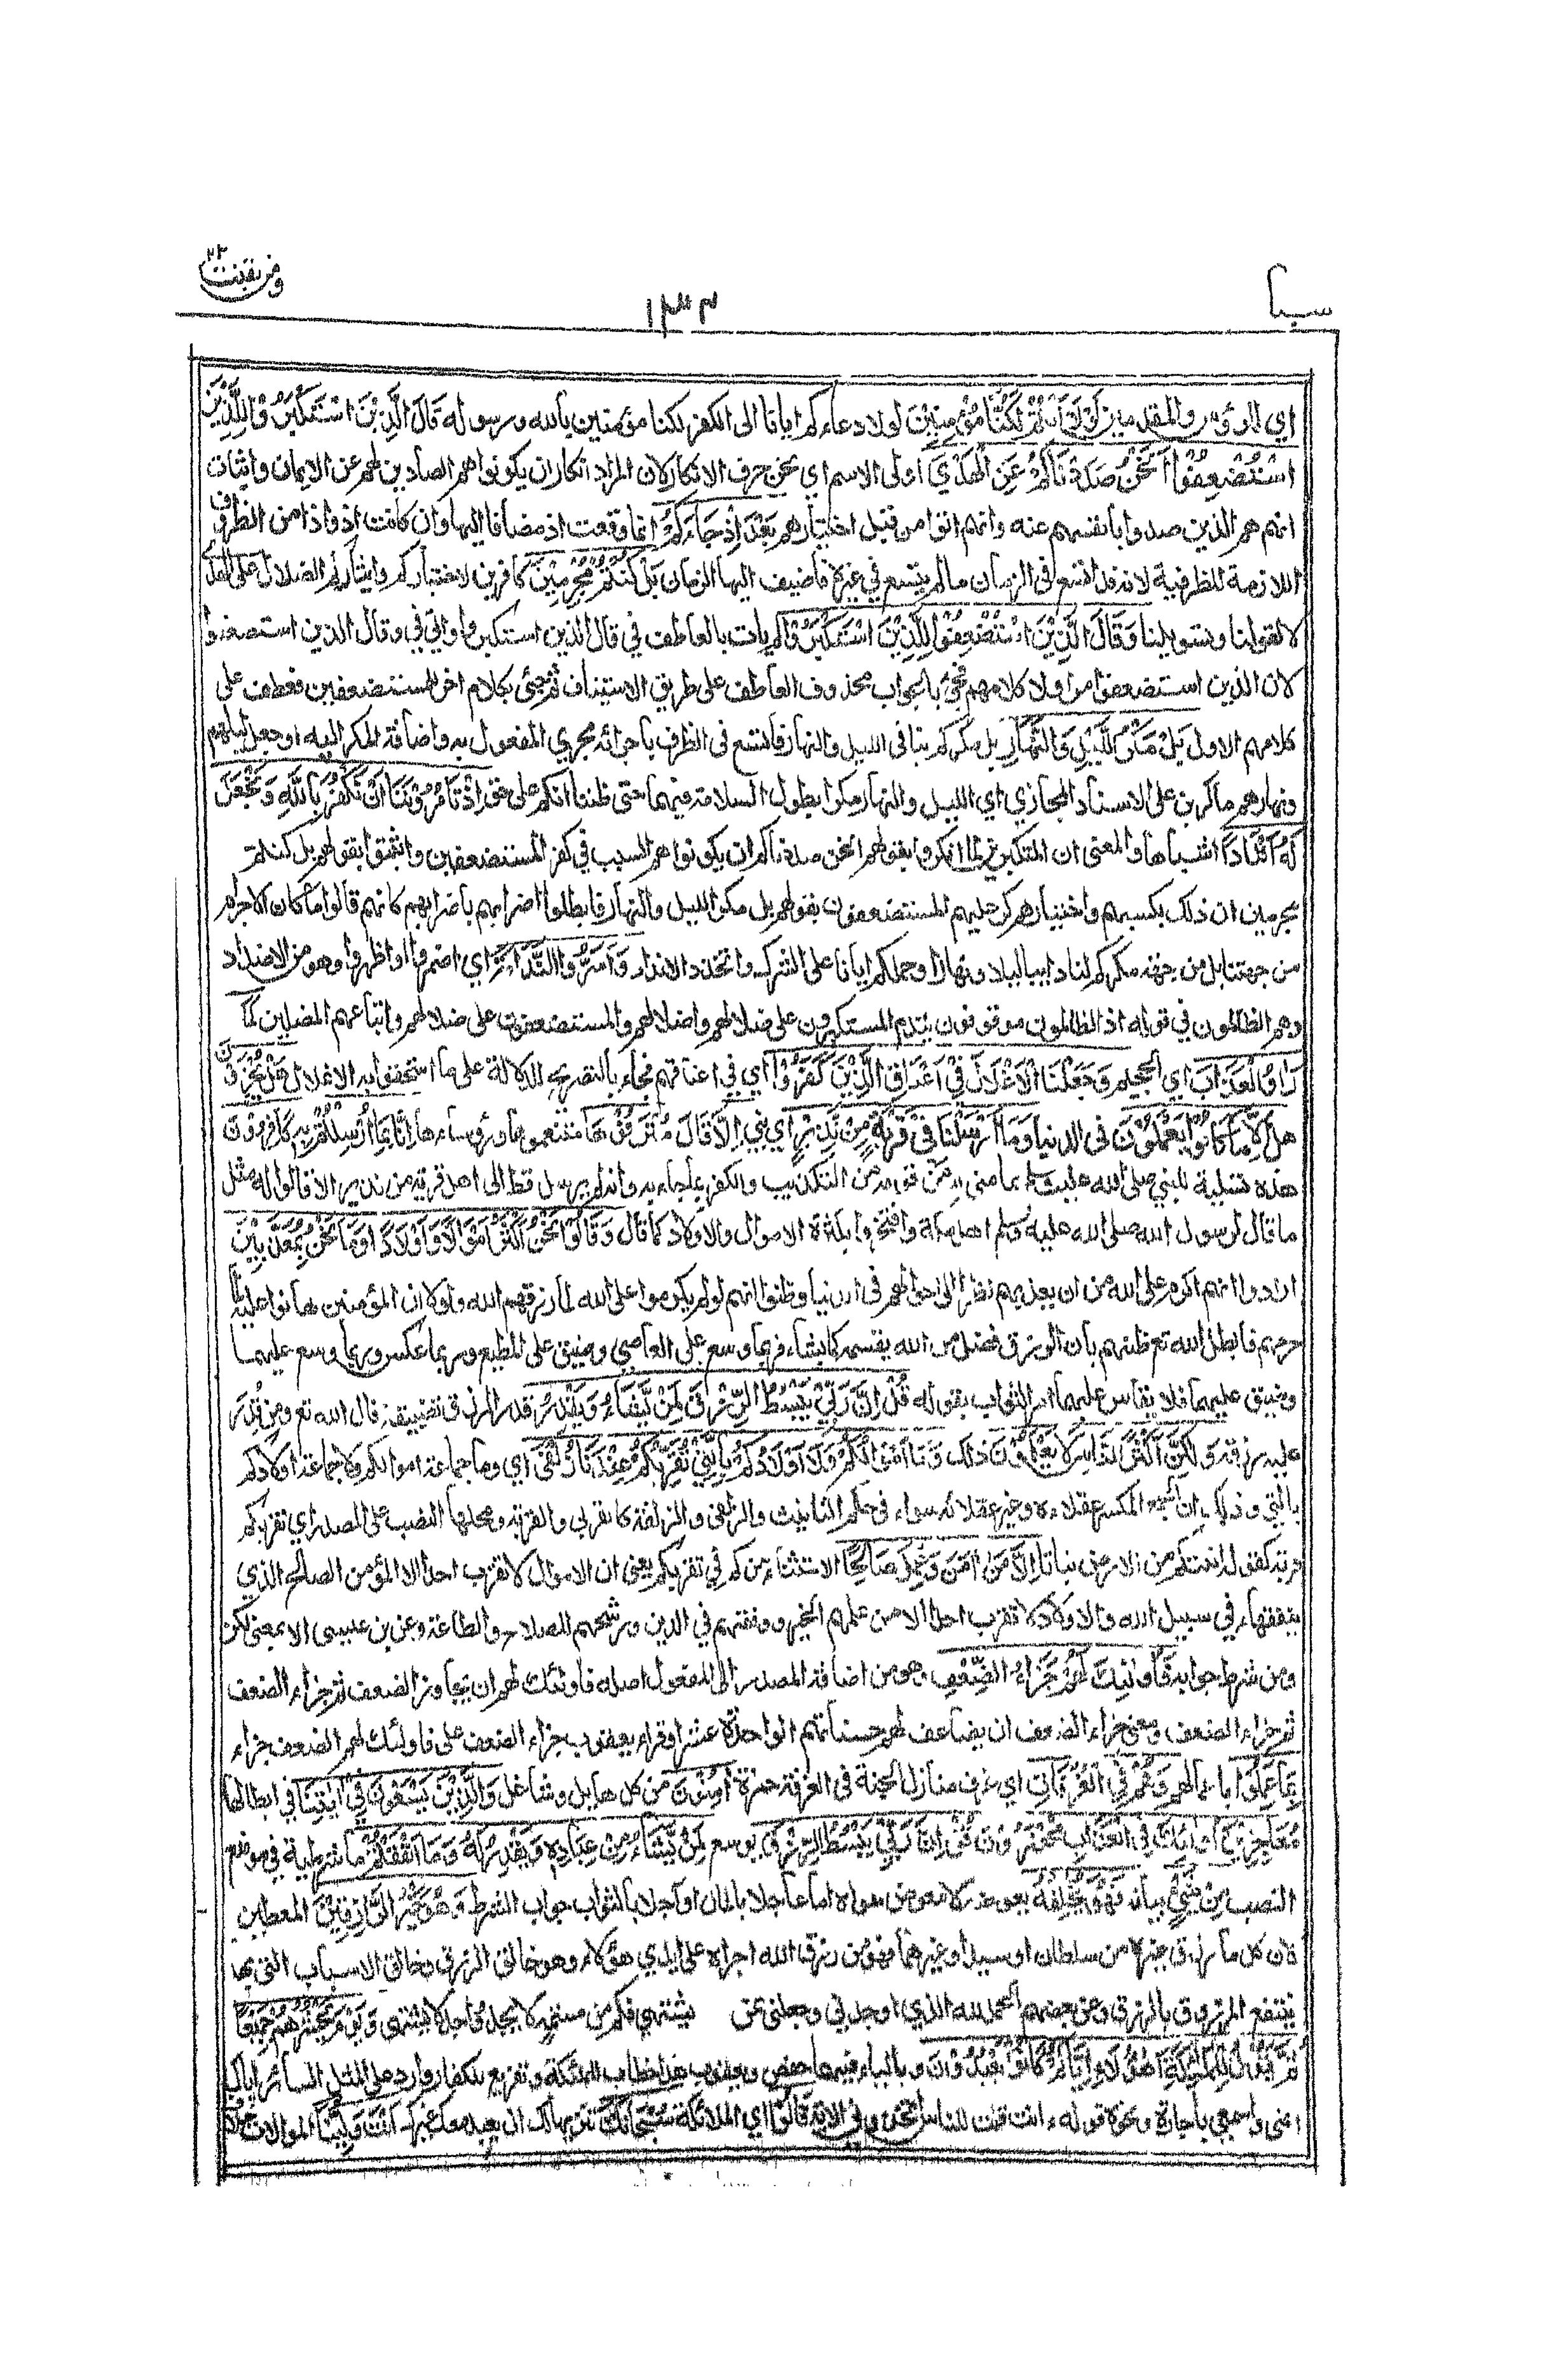 سبا
١٣٣
ومن يقنت ٢٢
اي للرؤس والمقدمين لَوْلَا أَنْتُمْ لَكُنَّا مُؤْمِنِيْنَ لولا دعاءكم ايانا الى الكفر لكنا مؤمنين بالله ورسوله قَالَ الَّذِيْنَ اسْتَكْبَرُوْا لِلَّذِيْنَ
اسْتُضْعِفُوْا أَنَحْنُ صَدَدْنَاكُمْ عَنِ الْهُدَى اولى الاسم اي نحن حرف الانكار لان المراد انكار ان يكونوا هم الصادين لهم عن الايمان واثبات
انهم هم الذين صدوا بانفسهم عنه وانهم اتوا من قبل اختيارهم بَعْدَ إِذْ جَاءَكُمْ انما وقعت اذ مضافا اليها وان كانت اذ واذا من الظروف
اللازمة للظرفية لانه قد اتسع فى الزمان ما لم يتسع في غيره فاضيف اليها الزمان بَلْ كُنْتُمْ مُجْرِمِيْنَ كافرين لاختياركم وايثاركم الضلال على الهدى
لا لقولنا وتسويلنا وَقَالَ الَّذِيْنَ اسْتُضْعِفُوْا لِلَّذِيْنَ اسْتَكْبَرُوْا لم يات بالعاطف في قال الذين استكبروا واتي في وقال الذين استضعفوا
لان الذين استضعفوا مر اولا كلامهم فجئ بالجواب محذوف العاطف على طريق الاستيناف ثم جئ بكلام اخر للمستضعفين فعطف على
كلامهم الاول بَلْ مَكْرُ اللَّيْلِ وَالنَّهَارِ بل مكركم بنا فى الليل والنهار فاتسع فى الظرف باجرائه مجري المفعول به واضافة المكر اليه او جعل ليلهم
ونهارهم ماكرين على الاسناد المجازي اي الليل والنهار مكرا بطول السلامة فيهما حتى ظننا انكم على حق إِذْ تَأْمُرُوْنَنَا أَنْ نَّكْفُرَ بِاللَّهِ وَنَجْعَلَ
لَهُ أَنْدَادًا اشباها والمعنى ان المتكبرين لما انكروا بقولهم انحن صددناكم ان يكونوا هم السبب في كفر المستضعفين واثبتوا بقولهم بل كنتم
مجرمين ان ذلك بكسبهم واختيارهم كر عليهم المستضعفون بقولهم بل مكر الليل والنهار فابطلوا اضرابهم باضرابهم كانهم قالوا ما كان الاجرام
من جهتنا بل من جهة مكركم لنا دائبا ليلا ونهارا وحملكم ايانا على الشرك واتخاذ الانداد وَأَسَرُّوا النَّدَامَةَ اي اضمروا او اظهروا وهو من الاضداد
وهم الظالمون في قوله اذ الظالمون موقوفون يندم المستكبرون على ضلالهم واضلالهم والمستضعفون على ضلالهم واتباعهم المضلين لَمَّا
رَاَوُا الْعَذَابَ اي الجحيم وَجَعَلْنَا الْأَغْلَالَ فِيْ أَعْنَاقِ الَّذِيْنَ كَفَرُوْا اي في اعناقهم فجاء بالتصريح للدلالة على ما استحقوا به الاغلال هَلْ يُجْزَوْنَ
إِلَّا مَا كَانُوْا يَعْمَلُوْنَ فى الدنيا وَمَا أَرْسَلْنَا فِيْ قَرْيَةٍ مِنْ نَّذِيْرٍ اي نبي إِلَّا قَالَ مُتْرَفُوْهَا متنعموها ورؤساءها إِنَّا بِمَا أُرْسِلْتُمْ بِهِ كَافِرُوْنَ
هذه تسلية للنبي صلى الله عليه وسلم مما منى به من قومه من التكذيب والكفر بما جاء به وانه لم يرسل قط الى اهل قرية من نذير الا قالوا له مثل
ما قال لرسول الله صلى الله عليه وسلم اهل مكة وافتخروا بكثرة الاموال والاولاد كما قال وَقَالُوْا نَحْنُ أَكْثَرُ أَمْوَالًا وَّأَوْلَادًا وَمَا نَحْنُ بِمُعَذَّبِيْنَ
ارادوا انهم اكرم على الله من ان يعذبهم نظرا الى احوالهم فى الدنيا وظنوا انهم لو لم يكرموا على الله لما رزقهم الله ولولا ان المؤمنين هانوا عليه لما
حرمهم فابطل الله تع ظنهم بان الرزق فضل من الله يقسمه كما يشاء فربما وسع على العاصي وضيق على المطيع وربما عكس وربما وسع عليهما
وضيق عليهما فلا ينقاس عليهما امر الثواب بقوله قُلْ إِنَّ رَبِّيْ يَبْسُطُ الرِّزْقَ لِمَنْ يَّشَاءُ وَيَقْدِرُ قدر الرزق تضييقه قال الله تع ومن قُدِرَ
عليه رزقه وَلٰكِنَّ أَكْثَرَ النَّاسِ لَا يَعْلَمُوْنَ ذلك وَمَا أَمْوَالُكُمْ وَلَا أَوْلَادُكُمْ بِالَّتِيْ تُقَرِّبُكُمْ عِنْدَنَا زُلْفَى اي وما جماعة اموالكم ولا جماعة اولادكم
بالتي وذلك ان الجمع المكسر عقلاءه وغير عقلائه سواء فى حكم التانيث والزلفى والزلفة كالقربي والقربة ومحلها النصب على المصدر اي تقربكم
قربة كقوله انبتكم من الارض نباتا إِلَّا مَنْ اٰمَنَ وَعَمِلَ صَالِحًا الاستثناء من كم في تقربكم يعنى ان الاموال لا تقرب احدا الا المؤمن الصالح الذي
ينفقها في سبيل الله والاولاد لا تقرب احدا الا من علمهم الخير وفقههم في الدين ورشحهم للصلاح والطاعة وعن بن عيسى الا بمعنى لكن
ومن شرط جوابه فَأُولٰئِكَ لَهُمْ جَزَاءُ الضِّعْفِ وهو من اضافة المصدر الى المفعول اصله فاولئك لهم ان يجاوزا الضعف ثم جزاء الضعف
ثم جزاء الضعف ومعنى جزاء الضعف ان يضاعف لهم حسناتهم الواحدة عشرا وقراء يعقوب جزاء الضعف على فاولئك لهم الضعف جزاء
بِمَا عَمِلُوْا باعمالهم وَهُمْ فِي الْغُرُفَاتِ اي غرف منازل الجنة فى الغرفة حمزة اٰمِنُوْنَ من كل هايل وشاغل وَالَّذِيْنَ يَسْعَوْنَ فِيْ اٰيٰتِنَا في ابطالها
مُعَاجِزِيْنَ أُولٰئِكَ فِي الْعَذَابِ مُحْضَرُوْنَ قُلْ إِنَّ رَبِّيْ يَبْسُطُ الرِّزْقَ يوسع لِمَنْ يَّشَاءُ مِنْ عِبَادِهِ وَيَقْدِرُ لَهُ وَمَا أَنْفَقْتُمْ ما شرطية في موضع
النصب مِنْ شَيْءٍ بيانه فَهُوَ يُخْلِفُهُ يعوضه لا معوض سواه اما عاجلا بالمال او آجلا بالثواب جواب الشرط وَهُوَ خَيْرُ الرَّازِقِيْنَ المعطين
لان كل ما رزق غيره من سلطان او سيد او غيرهما فهو من رزق الله اجراه على ايدي هؤلاء وهو خالق الرزق وخالق الاسباب التي بها
ينتفع المرزوق بالرزق وعن بعضهم الحمد لله الذي اوجدني وجعلنى ممن يشتهي فكم من مشته لا يجد وواجد لا يشتهى وَيَوْمَ نَحْشُرُهُمْ جَمِيْعًا
ثُمَّ نَقُوْلُ لِلْمَلٰئِكَةِ أَهٰؤُلَاءِ إِيَّاكُمْ كَانُوْا يَعْبُدُوْنَ وبالياء فيهما حفص ويعقوب هذا خطاب للملئكة وتقريع للكفار وارد على المثل السائر اياك
اعنى واسمعي ياجارة ونحوه قوله ءانت قلت للناس اتخذوني الاية قَالُوْا اي الملائكة سُبْحَانَكَ تنزيها لك ان يعبد معك غيرك أَنْتَ وَلِيُّنَا الموالات